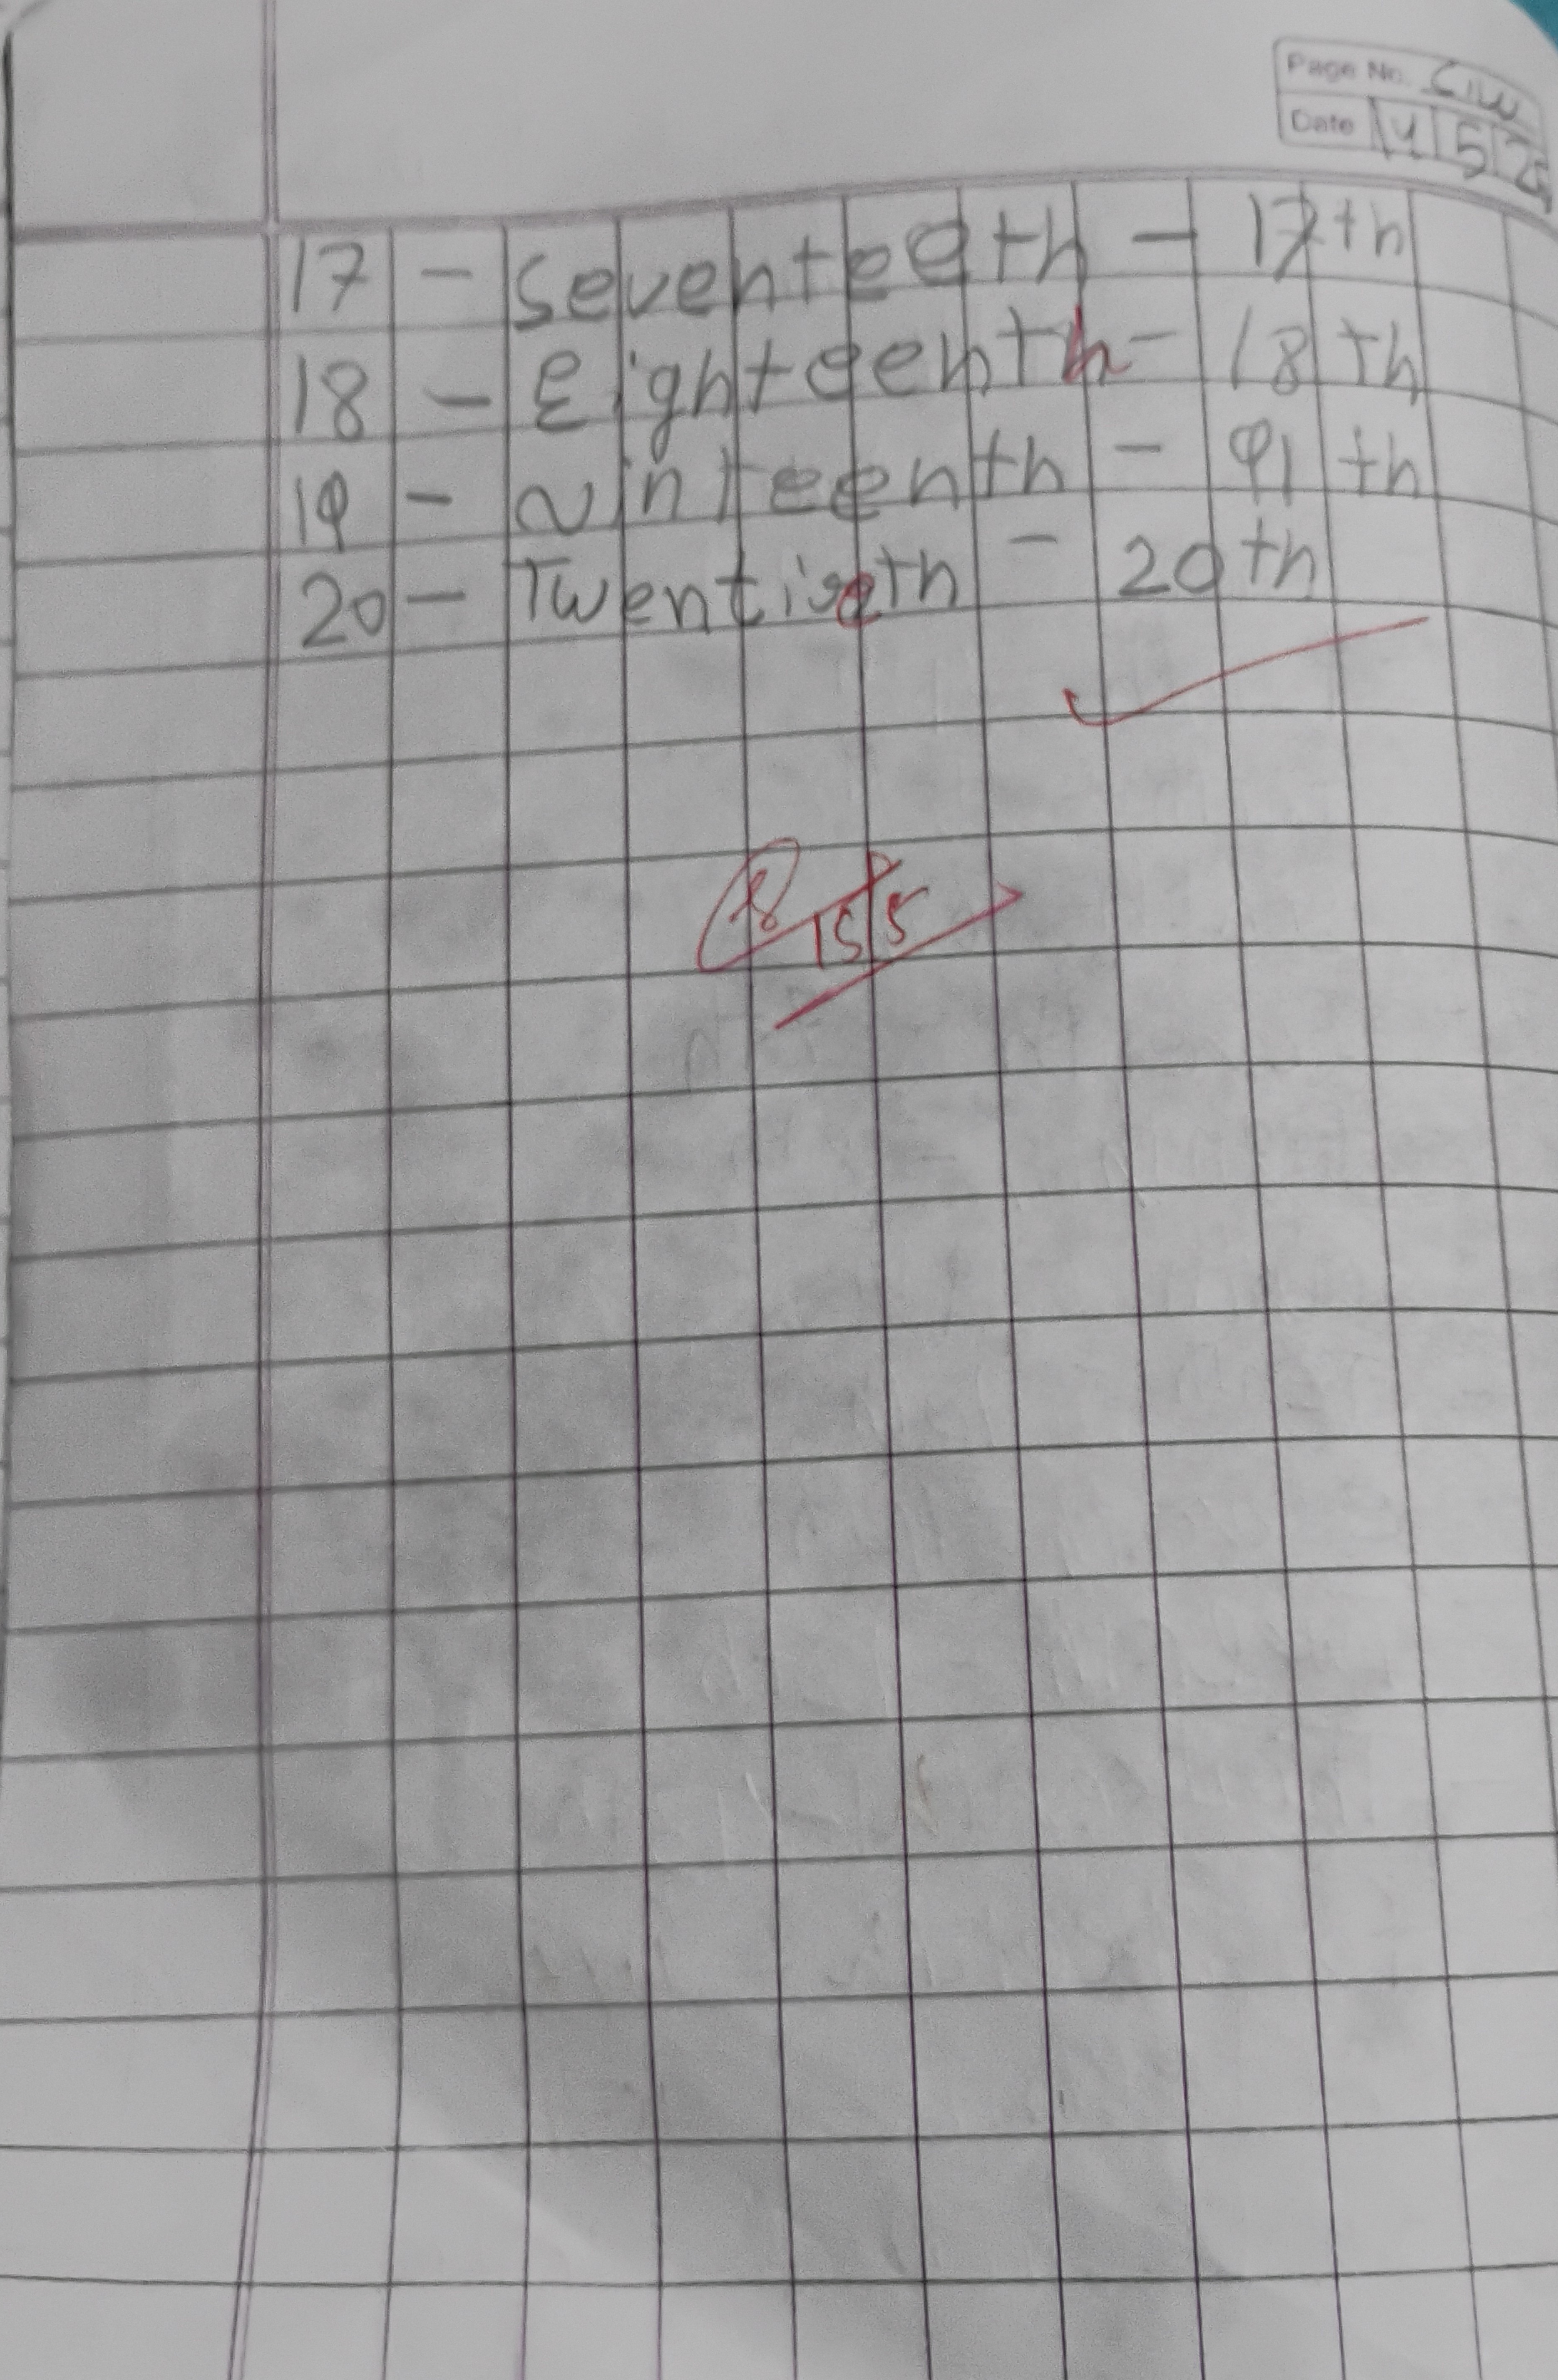 Page No. C.W
Date 4 5 25
17 - Seventeeth - 17th
18 - Eighteenth - 18th
19 - Ninteenth - 91th
20 - Twentieth - 20th
15/5